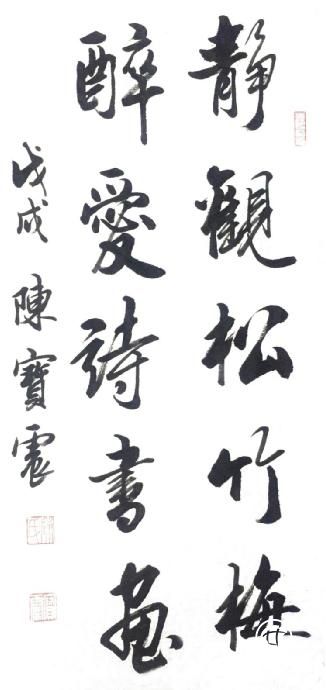 靜觀松竹梅
醉愛詩書画
戊戌 陳寶震